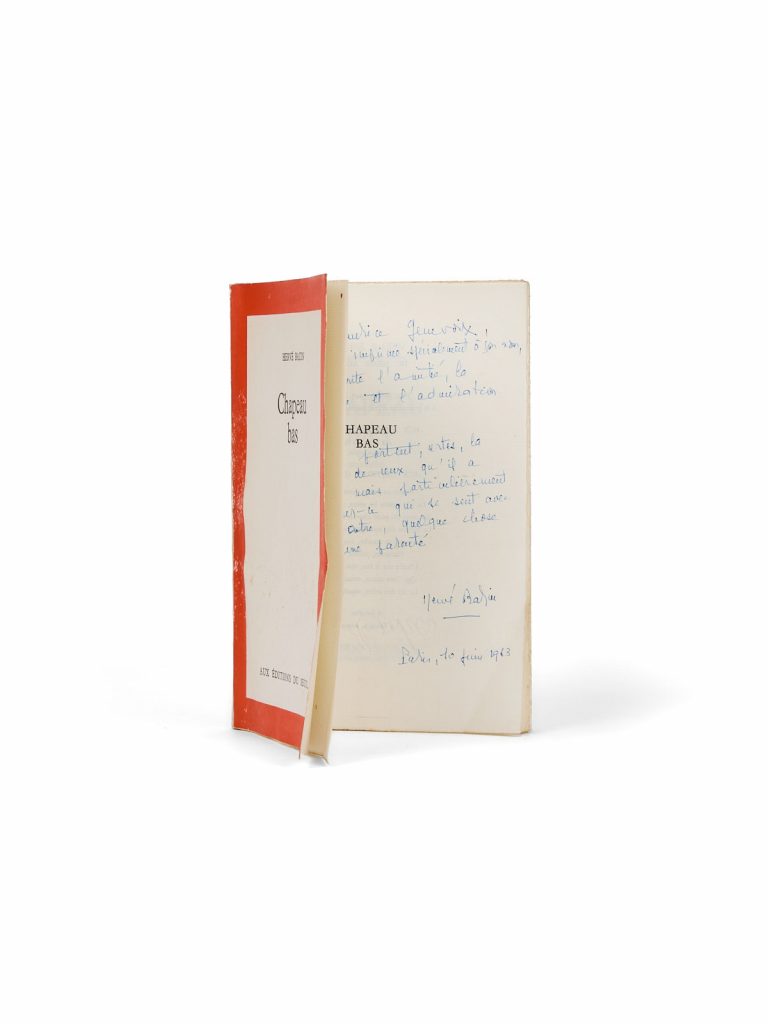 HERVÉ BAZIN
Chapeau
bas
AUX ÉDITIONS DU SEUIL
Genevoix,
spécialement à son nom,
l'amitié, la
et l'admiration
HAPEAU
BAS
portent, certes, la
de ceux qu'il a
mais particulièrement
ce qui se sont
quelque chose
une parenté
Hervé Bazin
Paris, 10 juin 1963